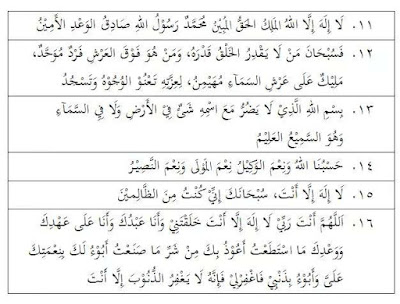 ١١. لَا إِلَهَ إِلَّا اللهُ المَلِكُ الحَقُّ المُبِيْنُ مُحَمَّدٌ رَسُوْلُ اللهِ صَادِقُ الوَعْدِ الأَمِيْنُ
١٢. فَسُبْحَانَ مَنْ لَا يَقْدِرُ الخَلْقُ قَدْرَهُ، وَمَنْ هُوَ فَوْقَ العَرْشِ فَرْدٌ مُوَحَّدٌ،
مَلِيْكٌ عَلَى عَرْشِ السَّمَاءِ مُهَيْمِنٌ، لِعِزَّتِهِ تَعْنُوْ الوُجُوْهُ وَتَسْجُدُ
١٣. بِسْمِ اللهِ الَّذِيْ لَا يَضُرُّ مَعَ اسْمِهِ شَيْءٌ فِيْ الأَرْضِ وَلَا فِي السَّمَآءِ
وَهُوَ السَّمِيْعُ العَلِيْمُ
١٤. حَسْبُنَا اللهُ وَنِعْمَ الوَكِيْلُ نِعْمَ المَوْلَى وَنِعْمَ النَّصِيْرُ
١٥. لَا إِلَهَ إِلَّا أَنْتَ، سُبْحَانَكَ إِنِّيْ كُنْتُ مِنَ الظَّالِمِيْنَ
١٦. اَللَّهُمَّ أَنْتَ رَبِّيْ لَا إِلَهَ إِلَّا أَنْتَ خَلَقْتَنِيْ وَأَنَا عَبْدُكَ وَأَنَا عَلَى عَهْدِكَ
وَوَعْدِكَ مَا اسْتَطَعْتُ أَعُوْذُ بِكَ مِنْ شَرِّ مَا صَنَعْتُ أَبُوْءُ لَكَ بِنِعْمَتِكَ
عَلَيَّ وَأَبُوْءُ بِذَنْبِيْ فَاغْفِرْلِيْ فَإِنَّهُ لَا يَغْفِرُ الذُّنُوْبَ إِلَّا أَنْتَ